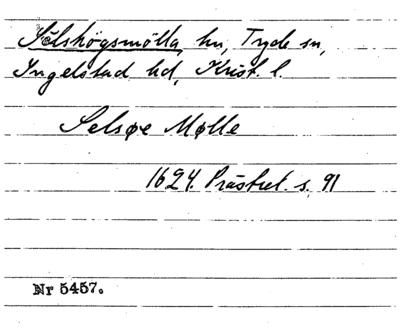 Sälshögsmölla, hu, Tryde sn,
Ingelstad hd, Krist. l.
Selsøe Mølle
1624. Prästrel. s. 91
Nr 5457.